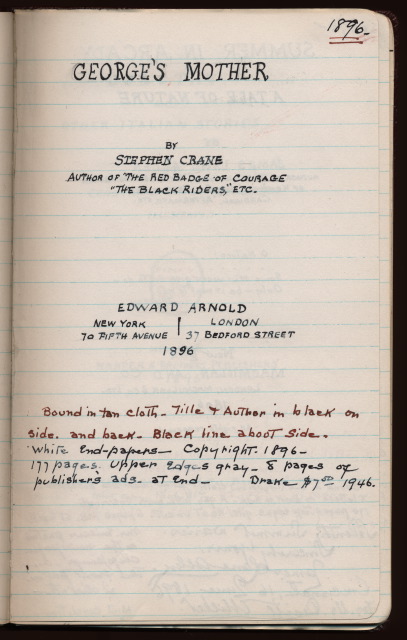 1896-
GEORGE'S MOTHER
BY
STEPHEN CRANE
AUTHOR OF "THE RED BADGE OF COURAGE
"THE BLACK RIDERS," ETC.
EDWARD ARNOLD
NEW YORK | LONDON
70 FIFTH AVENUE | 37 BEDFORD STREET
1896
Bound in tan cloth - Title & Author in black on
side. and back - Black line about side.
White End-papers - Copyright. 1896 -
177 pages. Upper edges gray - 8 pages of
publishers ads. at end - Drake $7.50 1946.